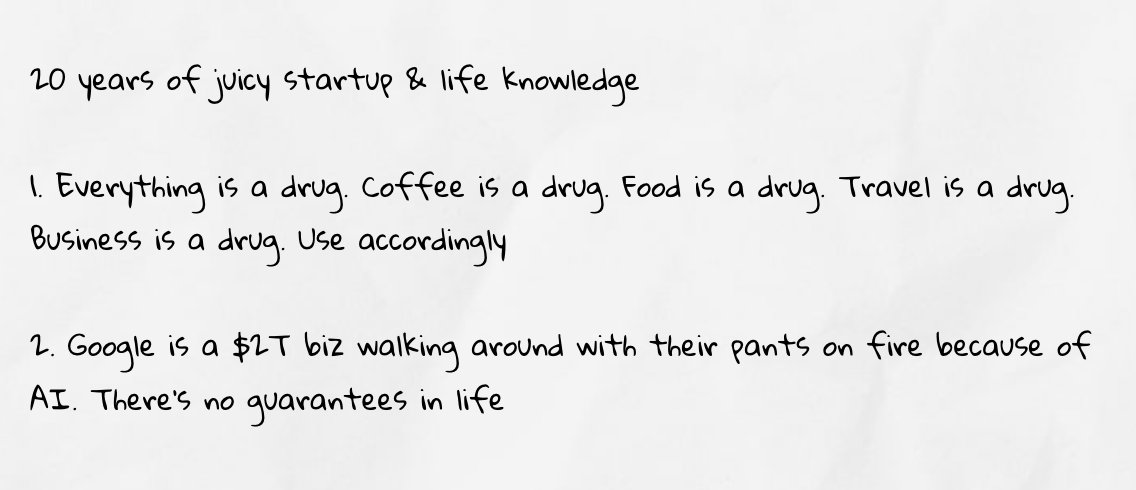 20 years of juicy startup & life knowledge
1. Everything is a drug. Coffee is a drug. Food is a drug. Travel is a drug.
Business is a drug. Use accordingly
2. Google is a $2T biz walking around with their pants on fire because of
AI. There's no guarantees in life